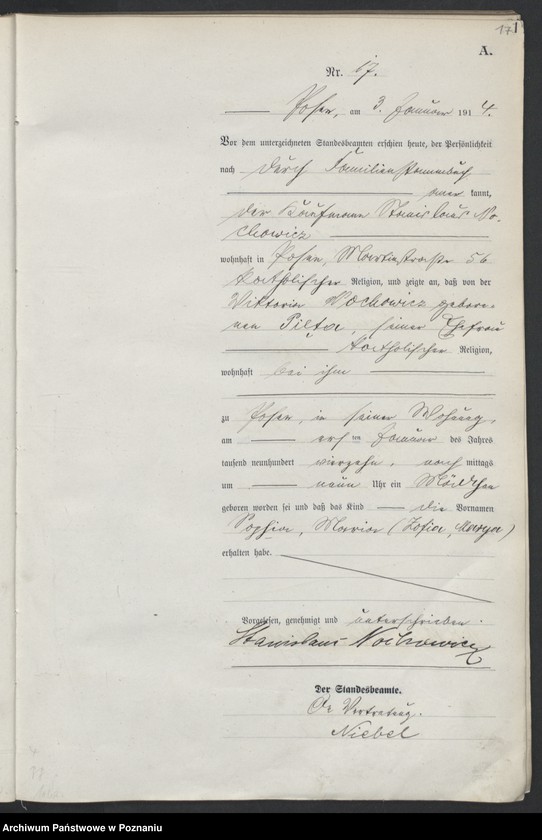 171
A.
Nr. 17.
Posen, am 3. Januar 1914.
Vor dem unterzeichneten Standesbeamten erschien heute, der Persönlichkeit
nach durch Familienstammbuch
aner kannt,
der Kaufmann Stanislaus No-
chowicz
wohnhaft in Posen, Martinstraße 56
katholischer Religion, und zeigte an, daß von der
Viktoria Nochowicz gebore-
nen Pilta, seiner Ehefrau
katholischer Religion,
wohnhaft bei ihm
zu Posen, in seiner Wohnung,
am ersten Januar des Jahres
tausend neunhundert vierzehn, nach mittags
um neun Uhr ein Mädchen
geboren worden sei und daß das Kind die Vornamen
Sophia, Maria (Zofia, Marya)
erhalten habe.
Vorgelesen, genehmigt und unterschrieben.
Stanislaus Nochowicz
Der Standesbeamte.
In Vertretung.
Niebel
Archiwum Państwowe w Poznaniu